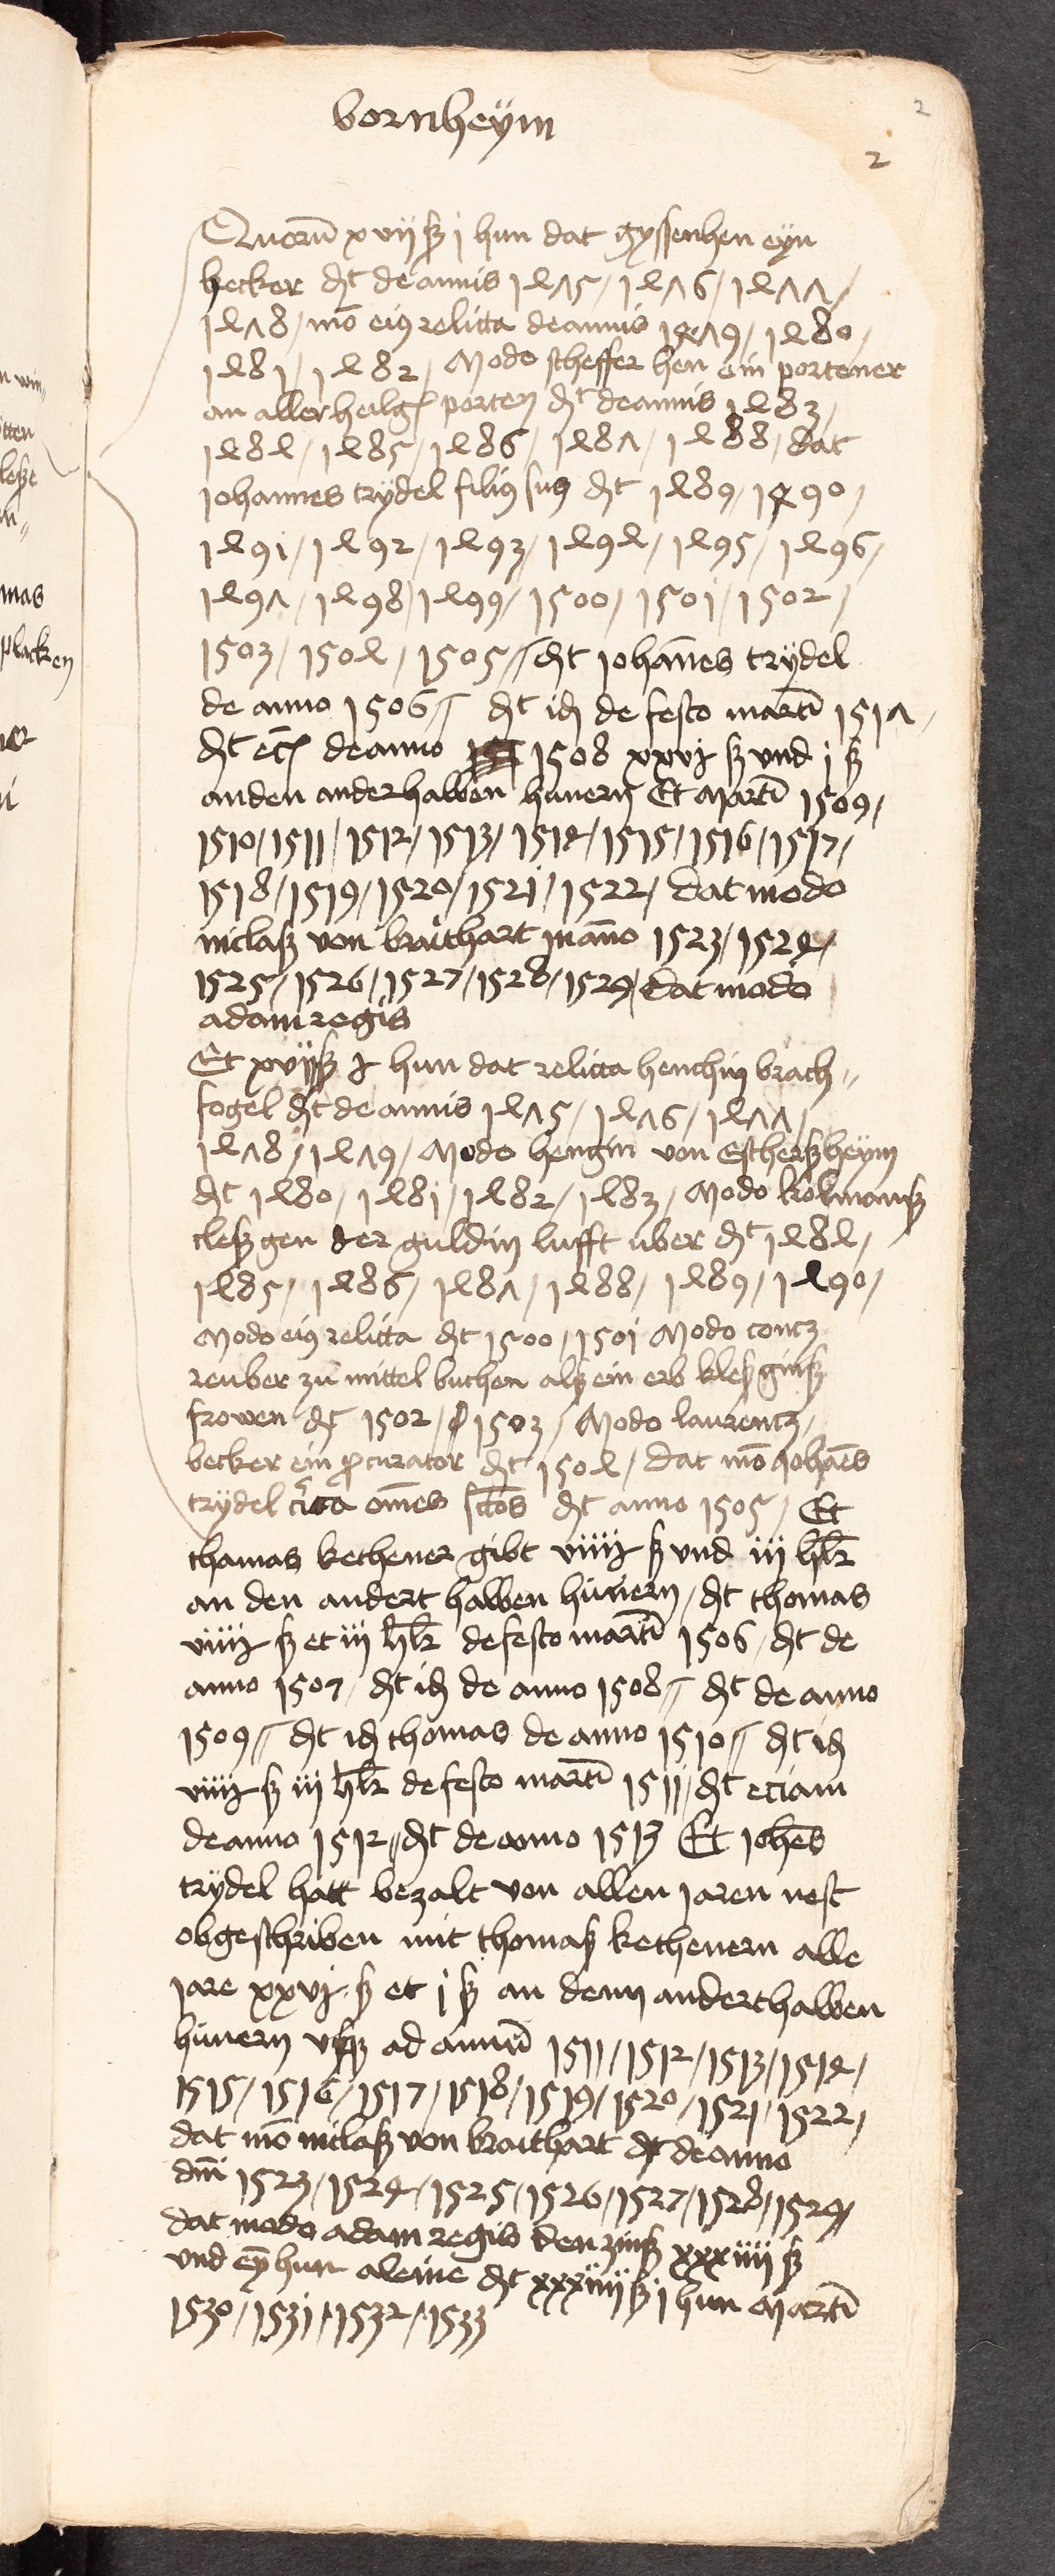 bornheym
2
2
Quorum xvij ß j hun dat gyssenhen eyn
becker dt de annis 1475 / 1476 / 1477 /
1478 / mo eius relicta de annis 1479 / 1480 /
1481 / 1482 / Modo scheffer hen ein portener
an allerheilgen porten dt de annis 1483 /
1484 / 1485 / 1486 / 1487 / 1488 / dat
Johannes trydel filius suus dt 1489 / 1490 /
1491 / 1492 / 1493 / 1494 / 1495 / 1496 /
1497 / 1498 / 1499 / 1500 / 1501 / 1502 /
1503 / 1504 / 1505 // dt Johanes trydel
de anno 1506 // dt id de festo marti 1517 /
dt ecia de anno 1508 xxvj ß und j ß
an den anderhalben hunern Et Marti 1509 /
1510 / 1511 / 1512 / 1513 / 1514 / 1515 / 1516 / 1517 /
1518 / 1519 / 1520 / 1521 / 1522 / dat modo
niclaß von braithart in anno 1523 / 1524 /
1525 / 1526 / 1527 / 1528 / 1529 / dat modo
adam regis
Et xvij ß j hun dat relicta henchin brach //
fogel dt de annis 1475 / 1476 / 1477 /
1478 / 1479 / Modo hengin von Escherßheym
dt 1480 / 1481 / 1482 / 1483 / Modo kolmanß
cleßgen der guldin lufft uber dt 1484 /
1485 / 1486 / 1487 / 1488 / 1489 / 1490 /
Modo eius relicta dt 1500 / 1501 Modo contz
reuber zu mittel buchen alß ein erb kleßginß
frowen dt 1502 / 1503 / Modo laurentz /
becker ein procurator dt 1504 / dat mo Johaes
trydel circa omes sctos dt anno 1505 / Et
thamas kethener gibt viiij ß und iij hlr
an den andert halben hunern / dt thomas
viiij ß et iij hlr de festo marti 1506 / dt de
anno 1507 / dt id de anno 1508 // dt de anno
1509 // dt id thomas de anno 1510 // dt id
viiij ß iij hlr de festo marti 1511 / dt eciam
de anno 1512 // dt de anno 1513 Et Johes
trydel hatt bezalt von allen jaren nest
obgeschriben mit thomaß kethenern alle
jare xxvj ß et j ß an denn anderthalben
hunern usß ad annum 1511 / 1512 / 1513 / 1514 /
1515 / 1516 / 1517 / 1518 / 1519 / 1520 / 1521 / 1522 /
dat mo niclaß von braithart dt de anno
dni 1523 / 1524 / 1525 / 1526 / 1527 / 1528 / 1529 /
dat modo adam regis den zinß xxxiiij ß
und ey hun aleine dt xxxiiij ß j hun Marti
1530 / 1531 / 1532 / 1533